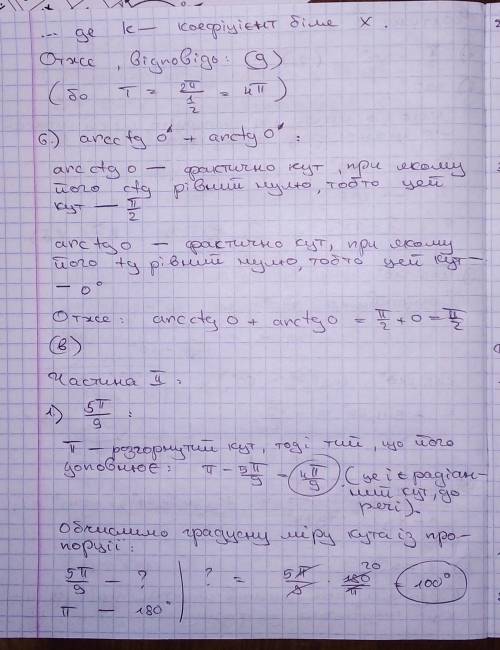 ... де k — коефіцієнт біля x.
Отже, відповідь: (д)
(бо T = 2π / 1/2 = 4π)
6.) arcctg 0° + arctg 0°:
arcctg 0 — фактично кут, при якому
його ctg рівний нулю, тобто цей
кут — π/2
arctg 0 — фактично кут, при якому
його tg рівний нулю, тобто цей кут —
— 0°
Отже: arcctg 0 + arctg 0 = π/2 + 0 = π/2
(в)
Частина II:
1.) 5π/9 :
π — розгорнутий кут, тоді тий, що його
доповнює: π - 5π/9 = 4π/9. (це і є радіан-
ний кут, до
речі).
Обчислимо градусну міру кута із про-
порції:
5π/9 — ? | ? = 5π/9 · 180/π 20 = 100°
π — 180°